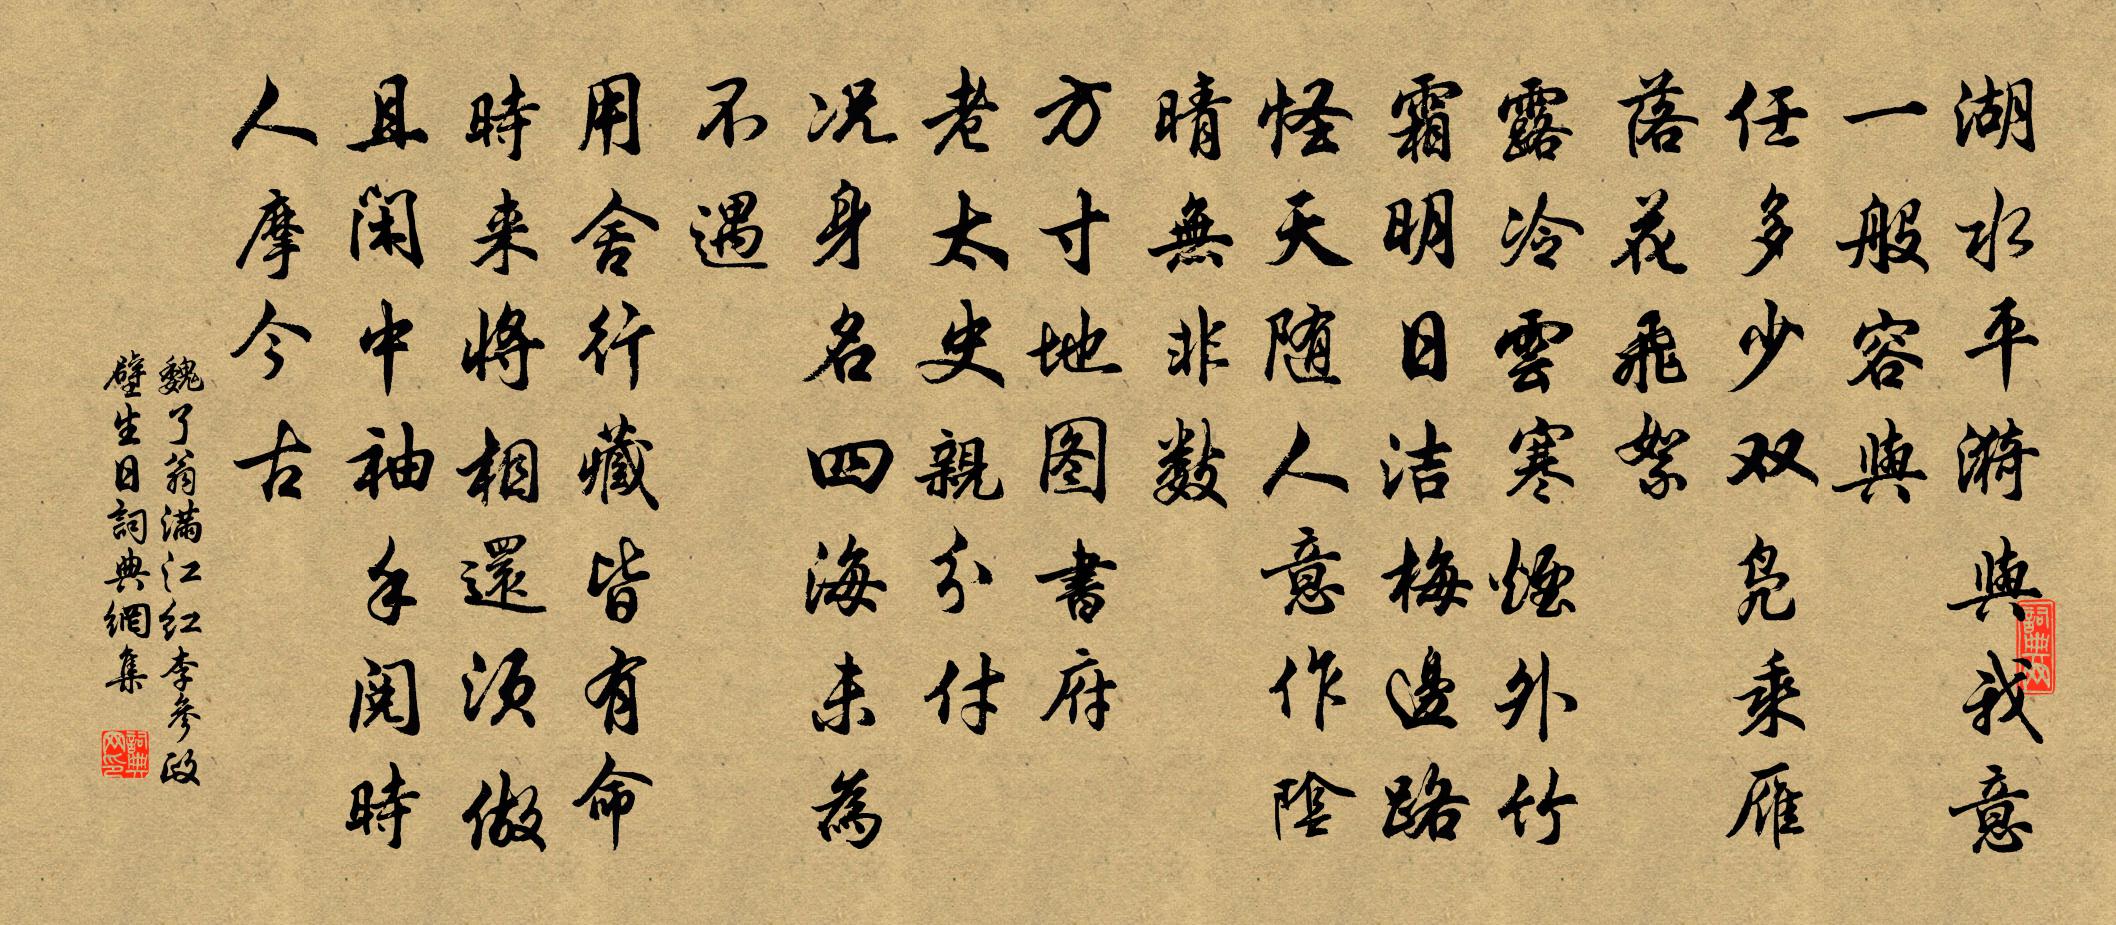 湖水平漪與我意
一般容與
任多少双凫乘雁
落花飛絮
露冷雲寒煙外竹
霜明日洁梅邊路
怪天随人意作陰
晴無非數
方寸地图書府
老太史親分付
况身名四海未為
不遇
用舍行藏皆有命
時来將相還须做
且闲中袖手阅時
人摩今古
魏了翁满江红李參政
壁生日詞典網集
詞典网
詞典网印